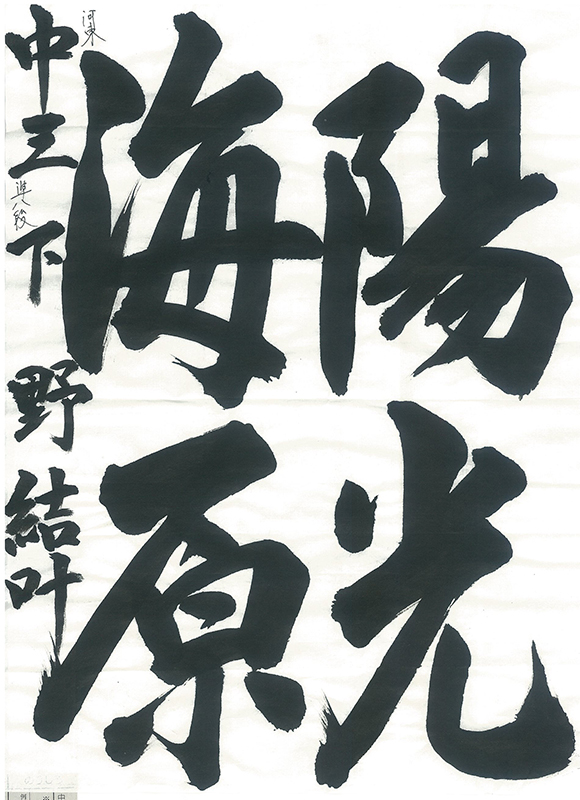 陽光
海原
河東
中三 準八段
下野 結叶